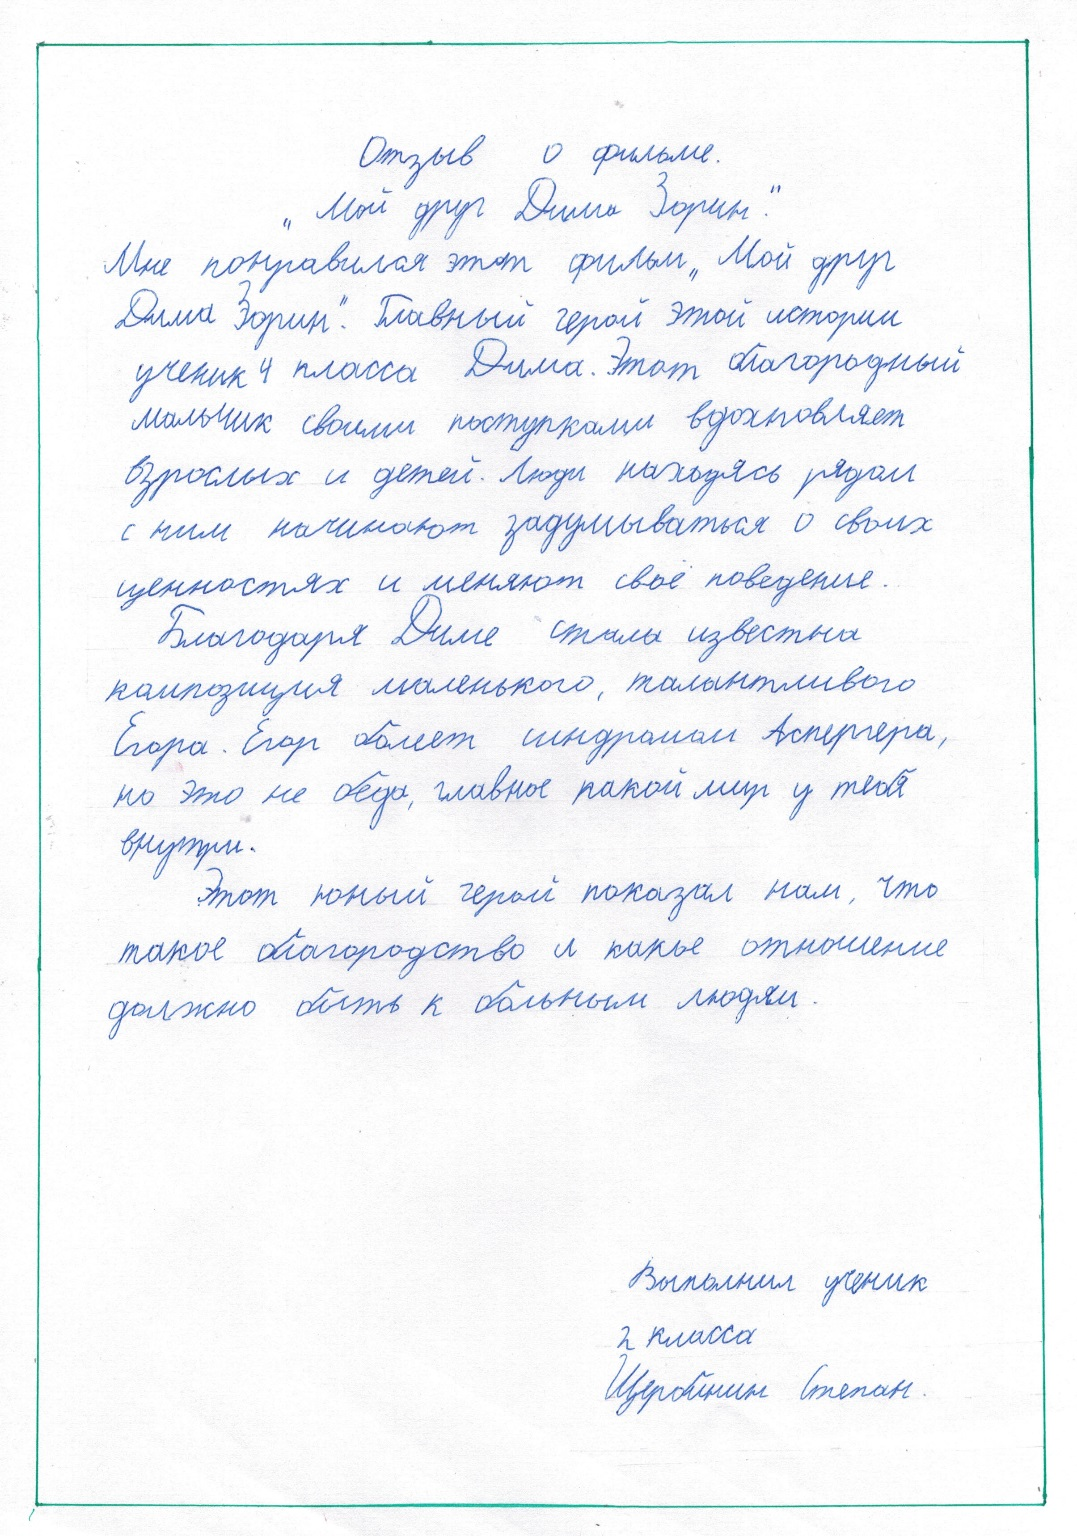 Отзыв о фильме.
„Мой друг Дима Зорин."
Мне понравился этот фильм „Мой друг
Дима Зорин". Главный герой этой истории
ученик 4 класса Дима. Этот благородный
мальчик своими поступками вдохновляет
взрослых и детей. Люди находясь рядом
с ним начинают задумываться о своих
ценностях и меняют своё поведение.
Благодаря Диме стала известна
композиция маленького, талантливого
Егора. Егор болеет синдромом Аспергера,
но это не беда, главное какой мир у тебя
внутри.
Этот юный герой показал нам, что
такое благородство и какое отношение
должно быть к больным людям.
Выполнил ученик
2 класса
Щербинин Степан.